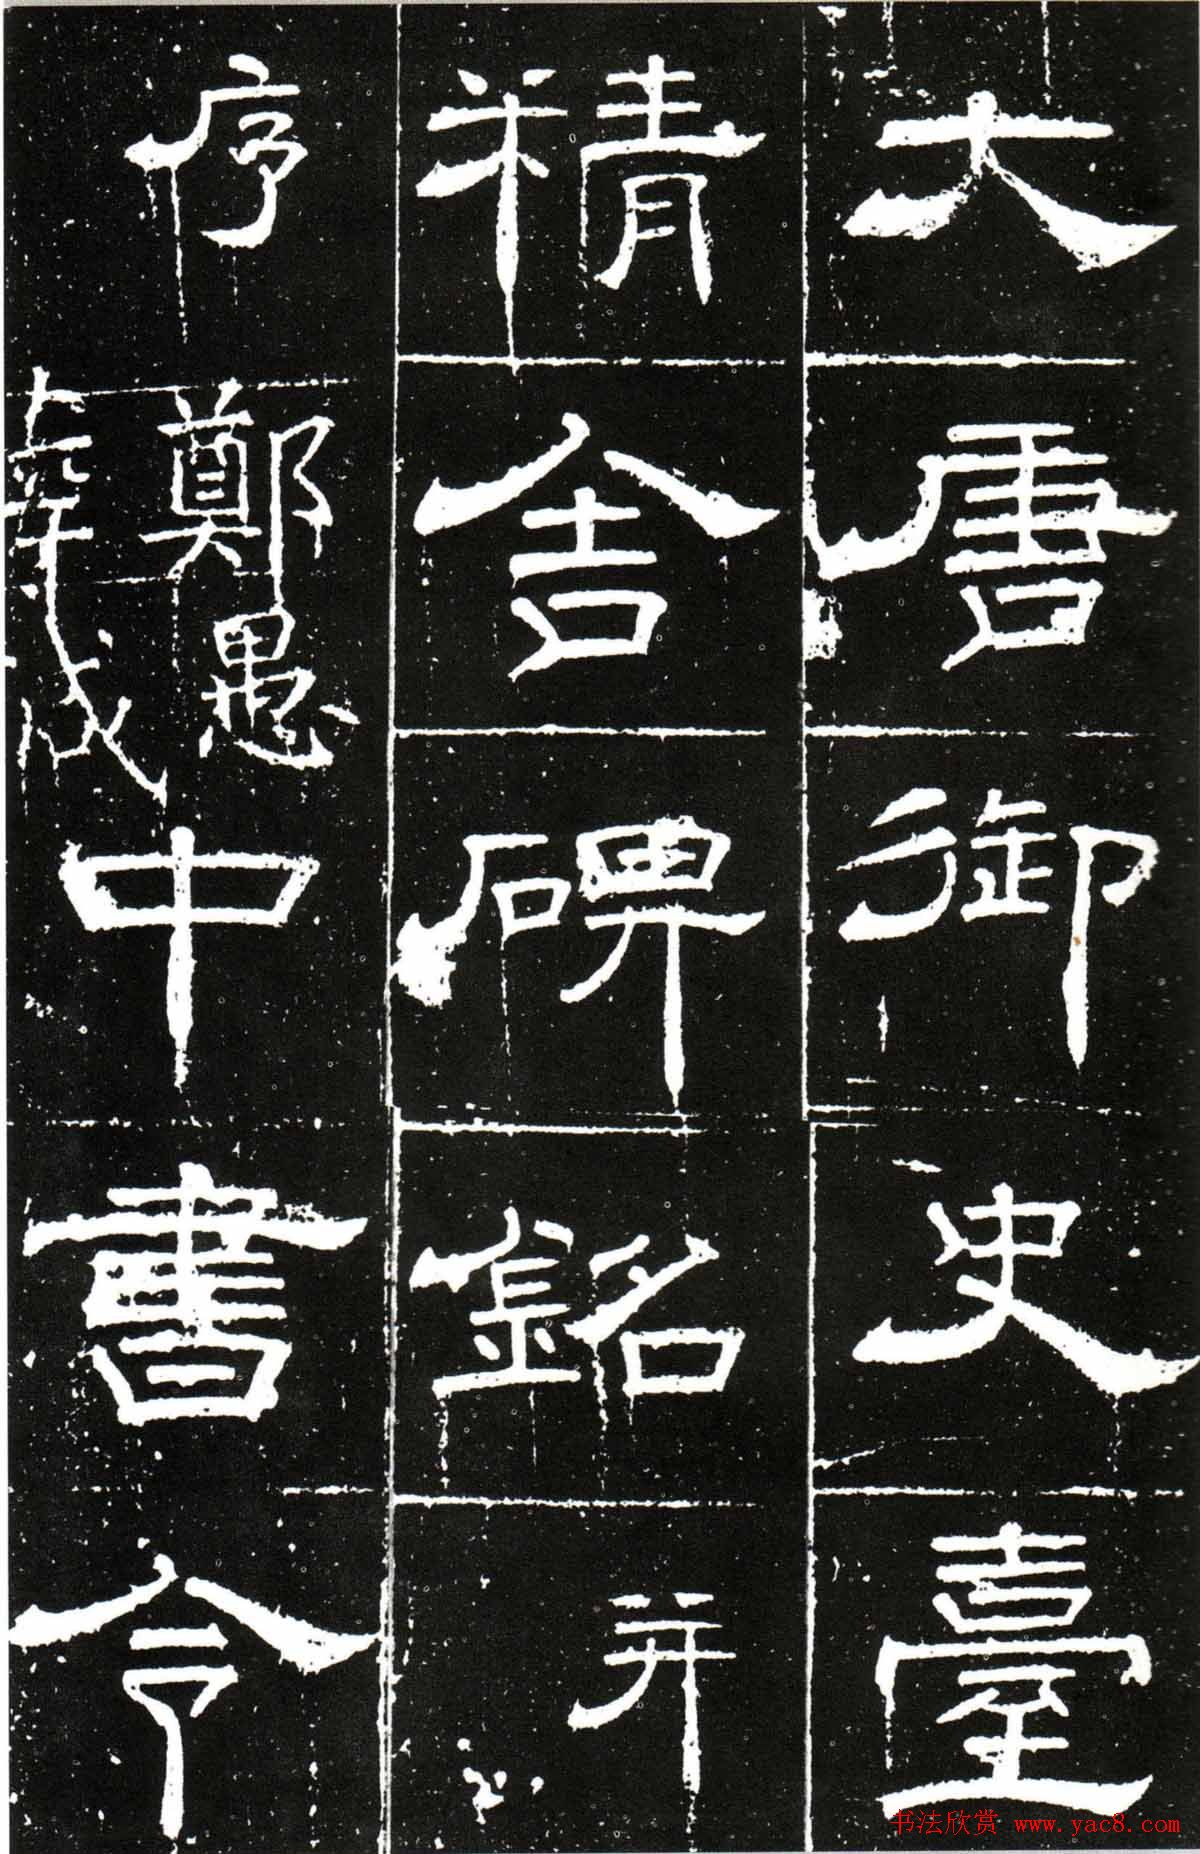 大唐御史臺
精舍碑銘并
序
鄭愚
中書令
书法欣赏 www.yac8.com